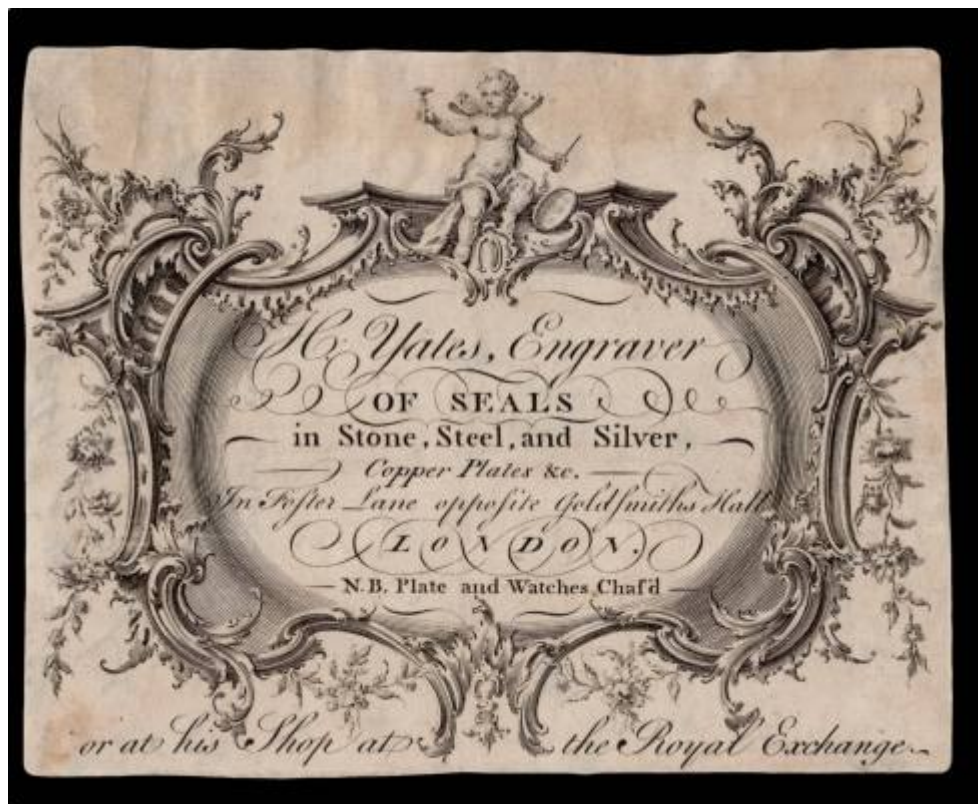 H. Yates, Engraver
OF SEALS
in Stone, Steel, and Silver,
Copper Plates &c.
In Foſter Lane oppoſite Goldſmiths Hall
LONDON.
N.B. Plate and Watches Chaſ'd
or at his Shop at the Royal Exchange